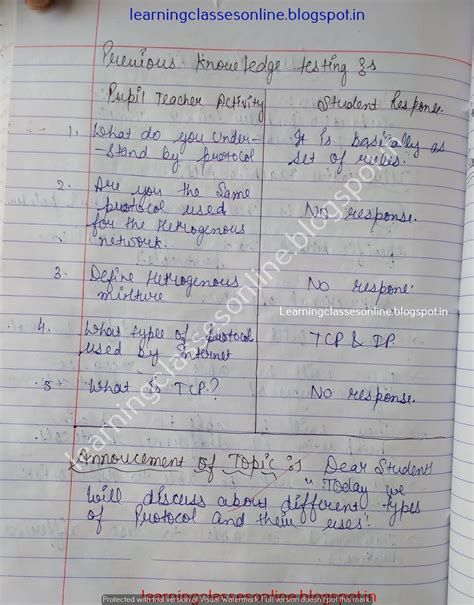 learningclassesonline.blogspot.in
Previous knowledge testing :-
Pupil Teacher Activity Student Response.
1. What do you under-
-stand by protocol
It is basically as
set of rules.
2. Are you the same
protocol used
for the Hetrogenous
network.
No response.
3. Define Hetrogenous
mixture
No respone.
Learningclassesonline.blogspot.in
4. What types of protocol
used by Internet
TCP & IP.
5 What is TCP.?
No response.
Learningclassesonline.blogspot.in
Annoucement of Topic :- Dear Students
"Today we
will discuss about different types
of Protocol and their uses.
Protected with trial version of Visual Watermark. Full version doesn't put this mark.
learningclassesonline.blogspot.in